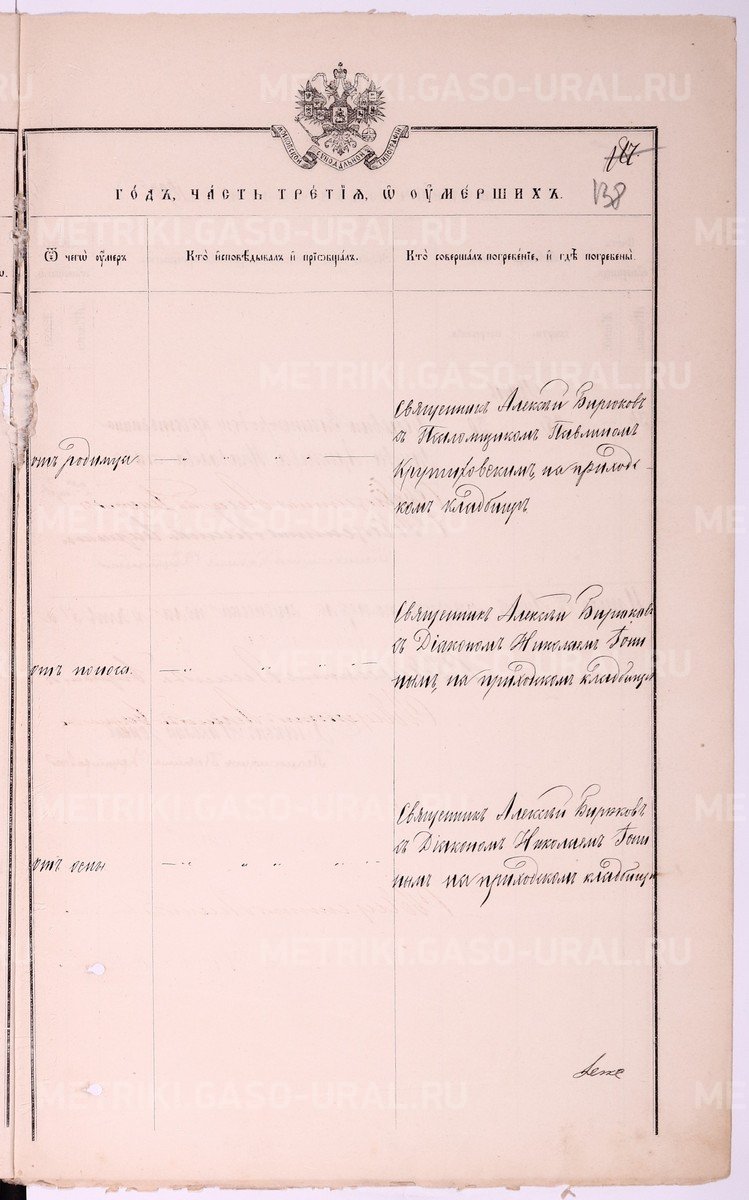 METRIKI.GASO-URAL.RU
МОСКОВСКОЙ СѴНОДАЛЬНОЙ ТИПОГРАФІИ
187
138
ГО́ДЪ, ЧА́СТЬ ТРЕ́ТІѦ, Ѽ ОУМЕ́РШИХЪ.
Ѿ чегѡ̀ оу҆́меръ
Кто̀ и҆сповѣ́дывалъ и҆ прїѡбща́лъ.
Кто̀ соверша́лъ погребе́нїе, и҆ гдѣ̀ погребены̀.
отъ родимца
Священникъ Алексѣй Бирюковъ
съ Псаломщикомъ Павлиномъ
на приход-
скомъ кладбищѣ
отъ поноса.
Священникъ Алексѣй Бирюковъ
съ Діакономъ Николаемъ Гони
нымъ, на приходскомъ кладбищѣ
отъ оспы
Священникъ Алексѣй Бирюковъ
съ Діакономъ Николаемъ Гони
нымъ на приходскомъ кладбищѣ